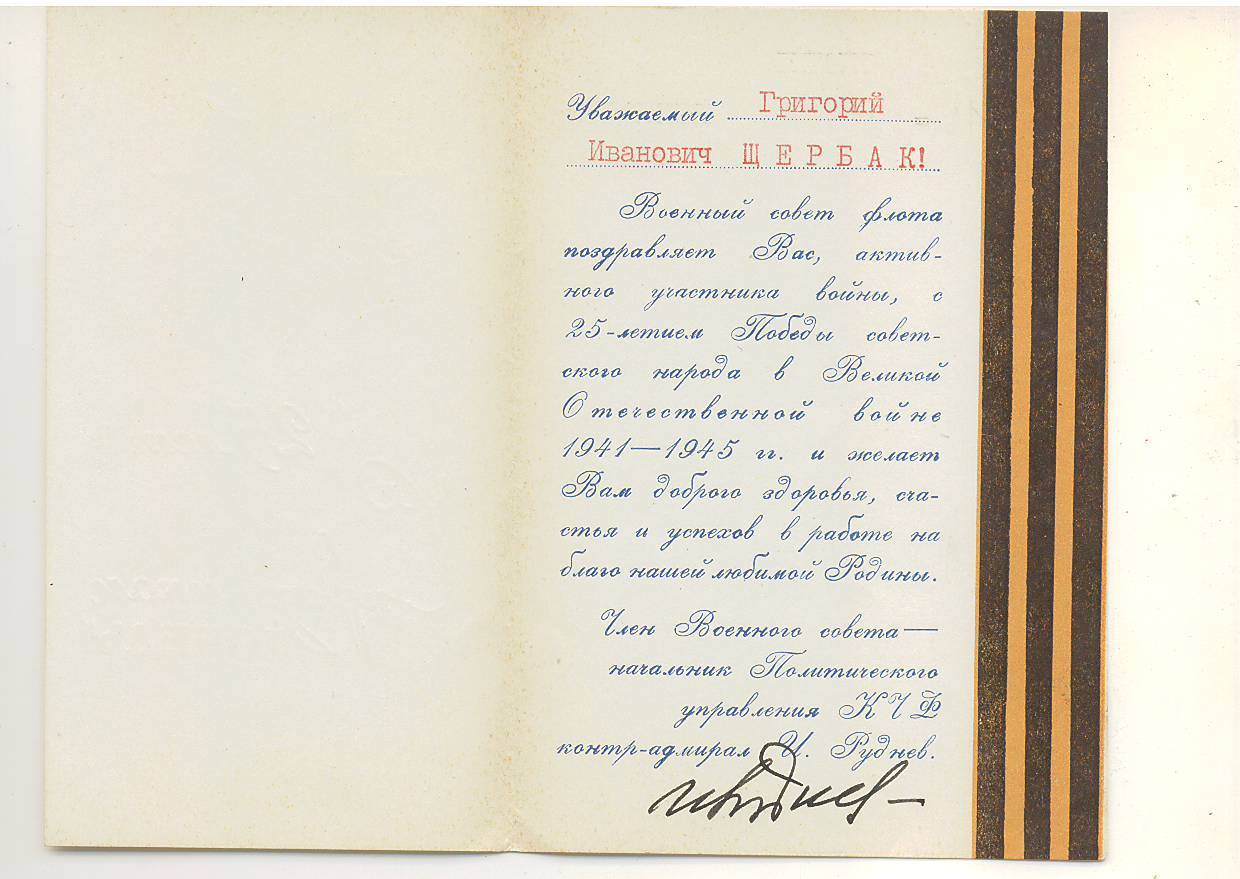 Уважаемый Григорий
Иванович ЩЕРБАК!
Военный совет флота
поздравляет Вас, актив-
ного участника войны, с
25-летием Победы совет-
ского народа в Великой
Отечественной войне
1941—1945 гг. и желает
Вам доброго здоровья, сча-
стья и успехов в работе на
благо нашей любимой Родины.
Член Военного совета—
начальник Политического
управления КЧФ
контр-адмирал И. Руднев.